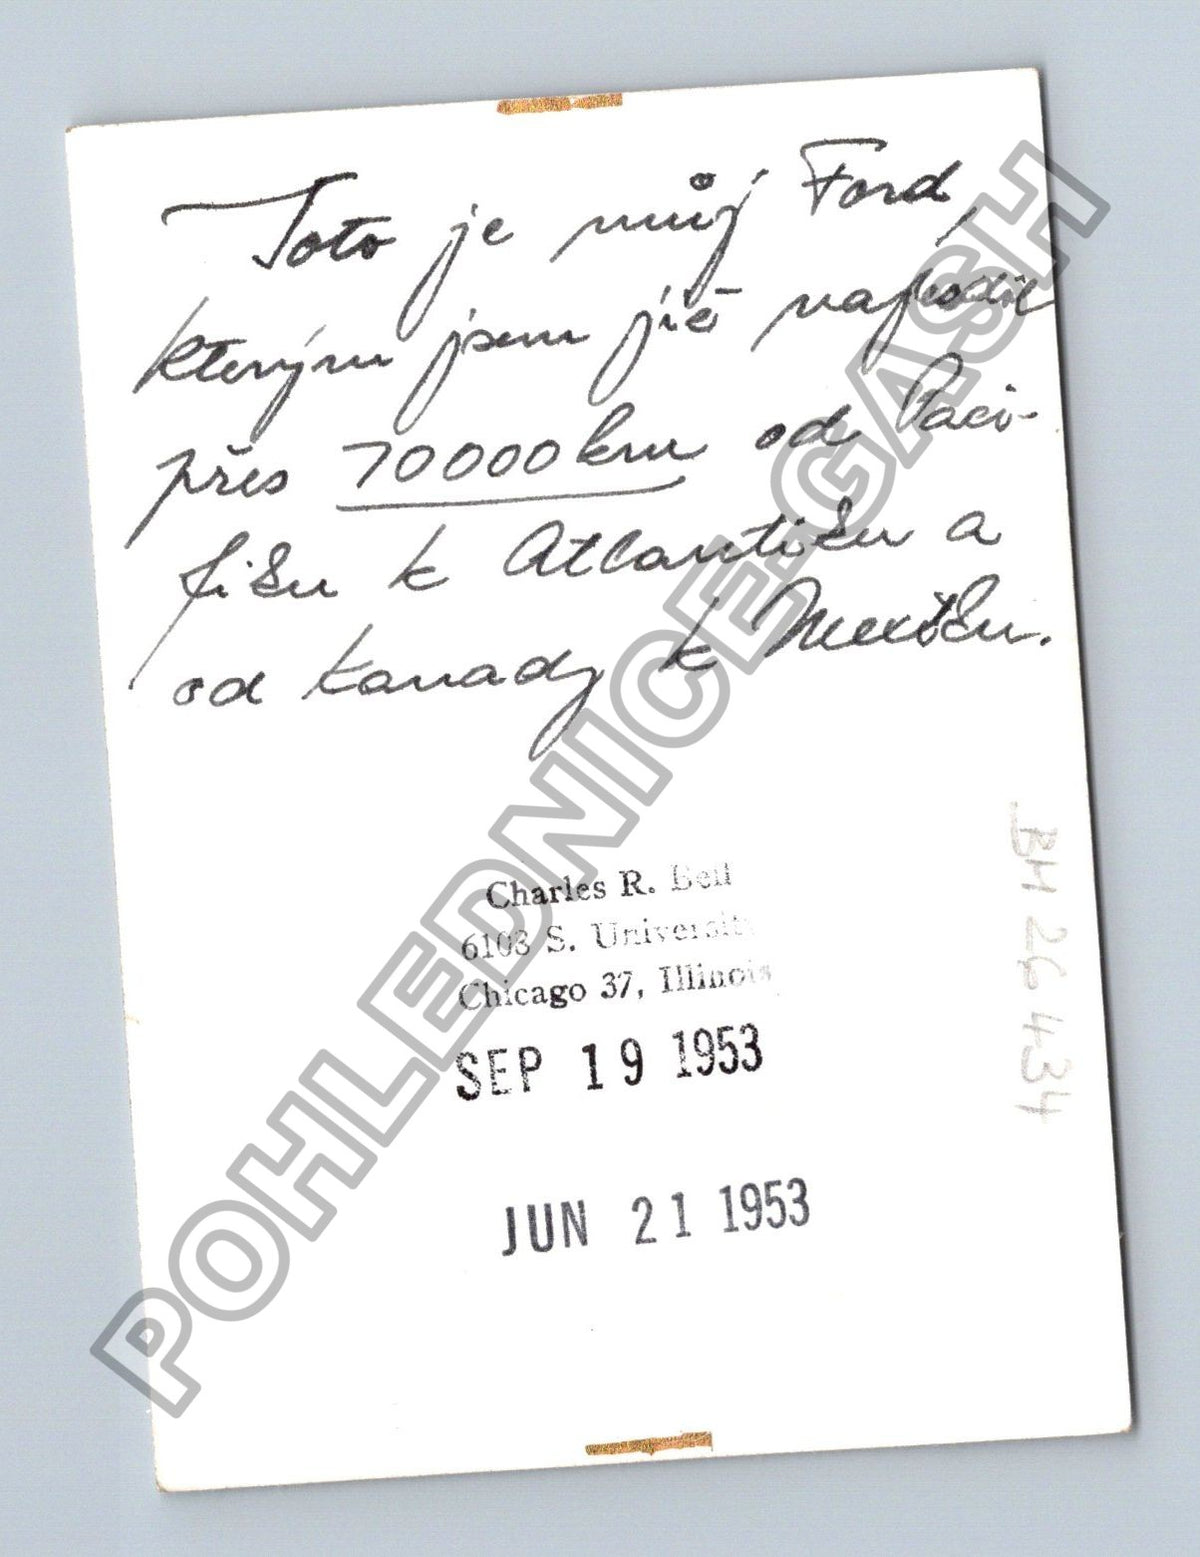 Toto je můj Ford,
kterým jsem již najezdil
přes 70000 km od Paci-
fiku k Atlantiku a
od Kanady k Mexiku.
Charles R. Bell
6108 S. University
Chicago 37, Illinois
SEP 19 1953
JUN 21 1953
BH 26 434
POHLEDNICE.GASH